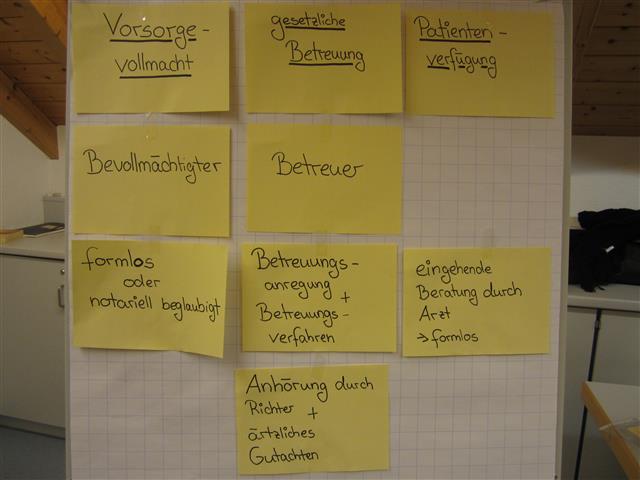 Vorsorge-
vollmacht
gesetzliche
Betreuung
Patienten-
verfügung
Bevollmächtigter
Betreuer
formlos
oder
notariell beglaubigt
Betreuungs-
anregung +
Betreuungs-
verfahren
eingehende
Beratung durch
Arzt
→ formlos
Anhörung durch
Richter +
ärtzliches
Gutachten